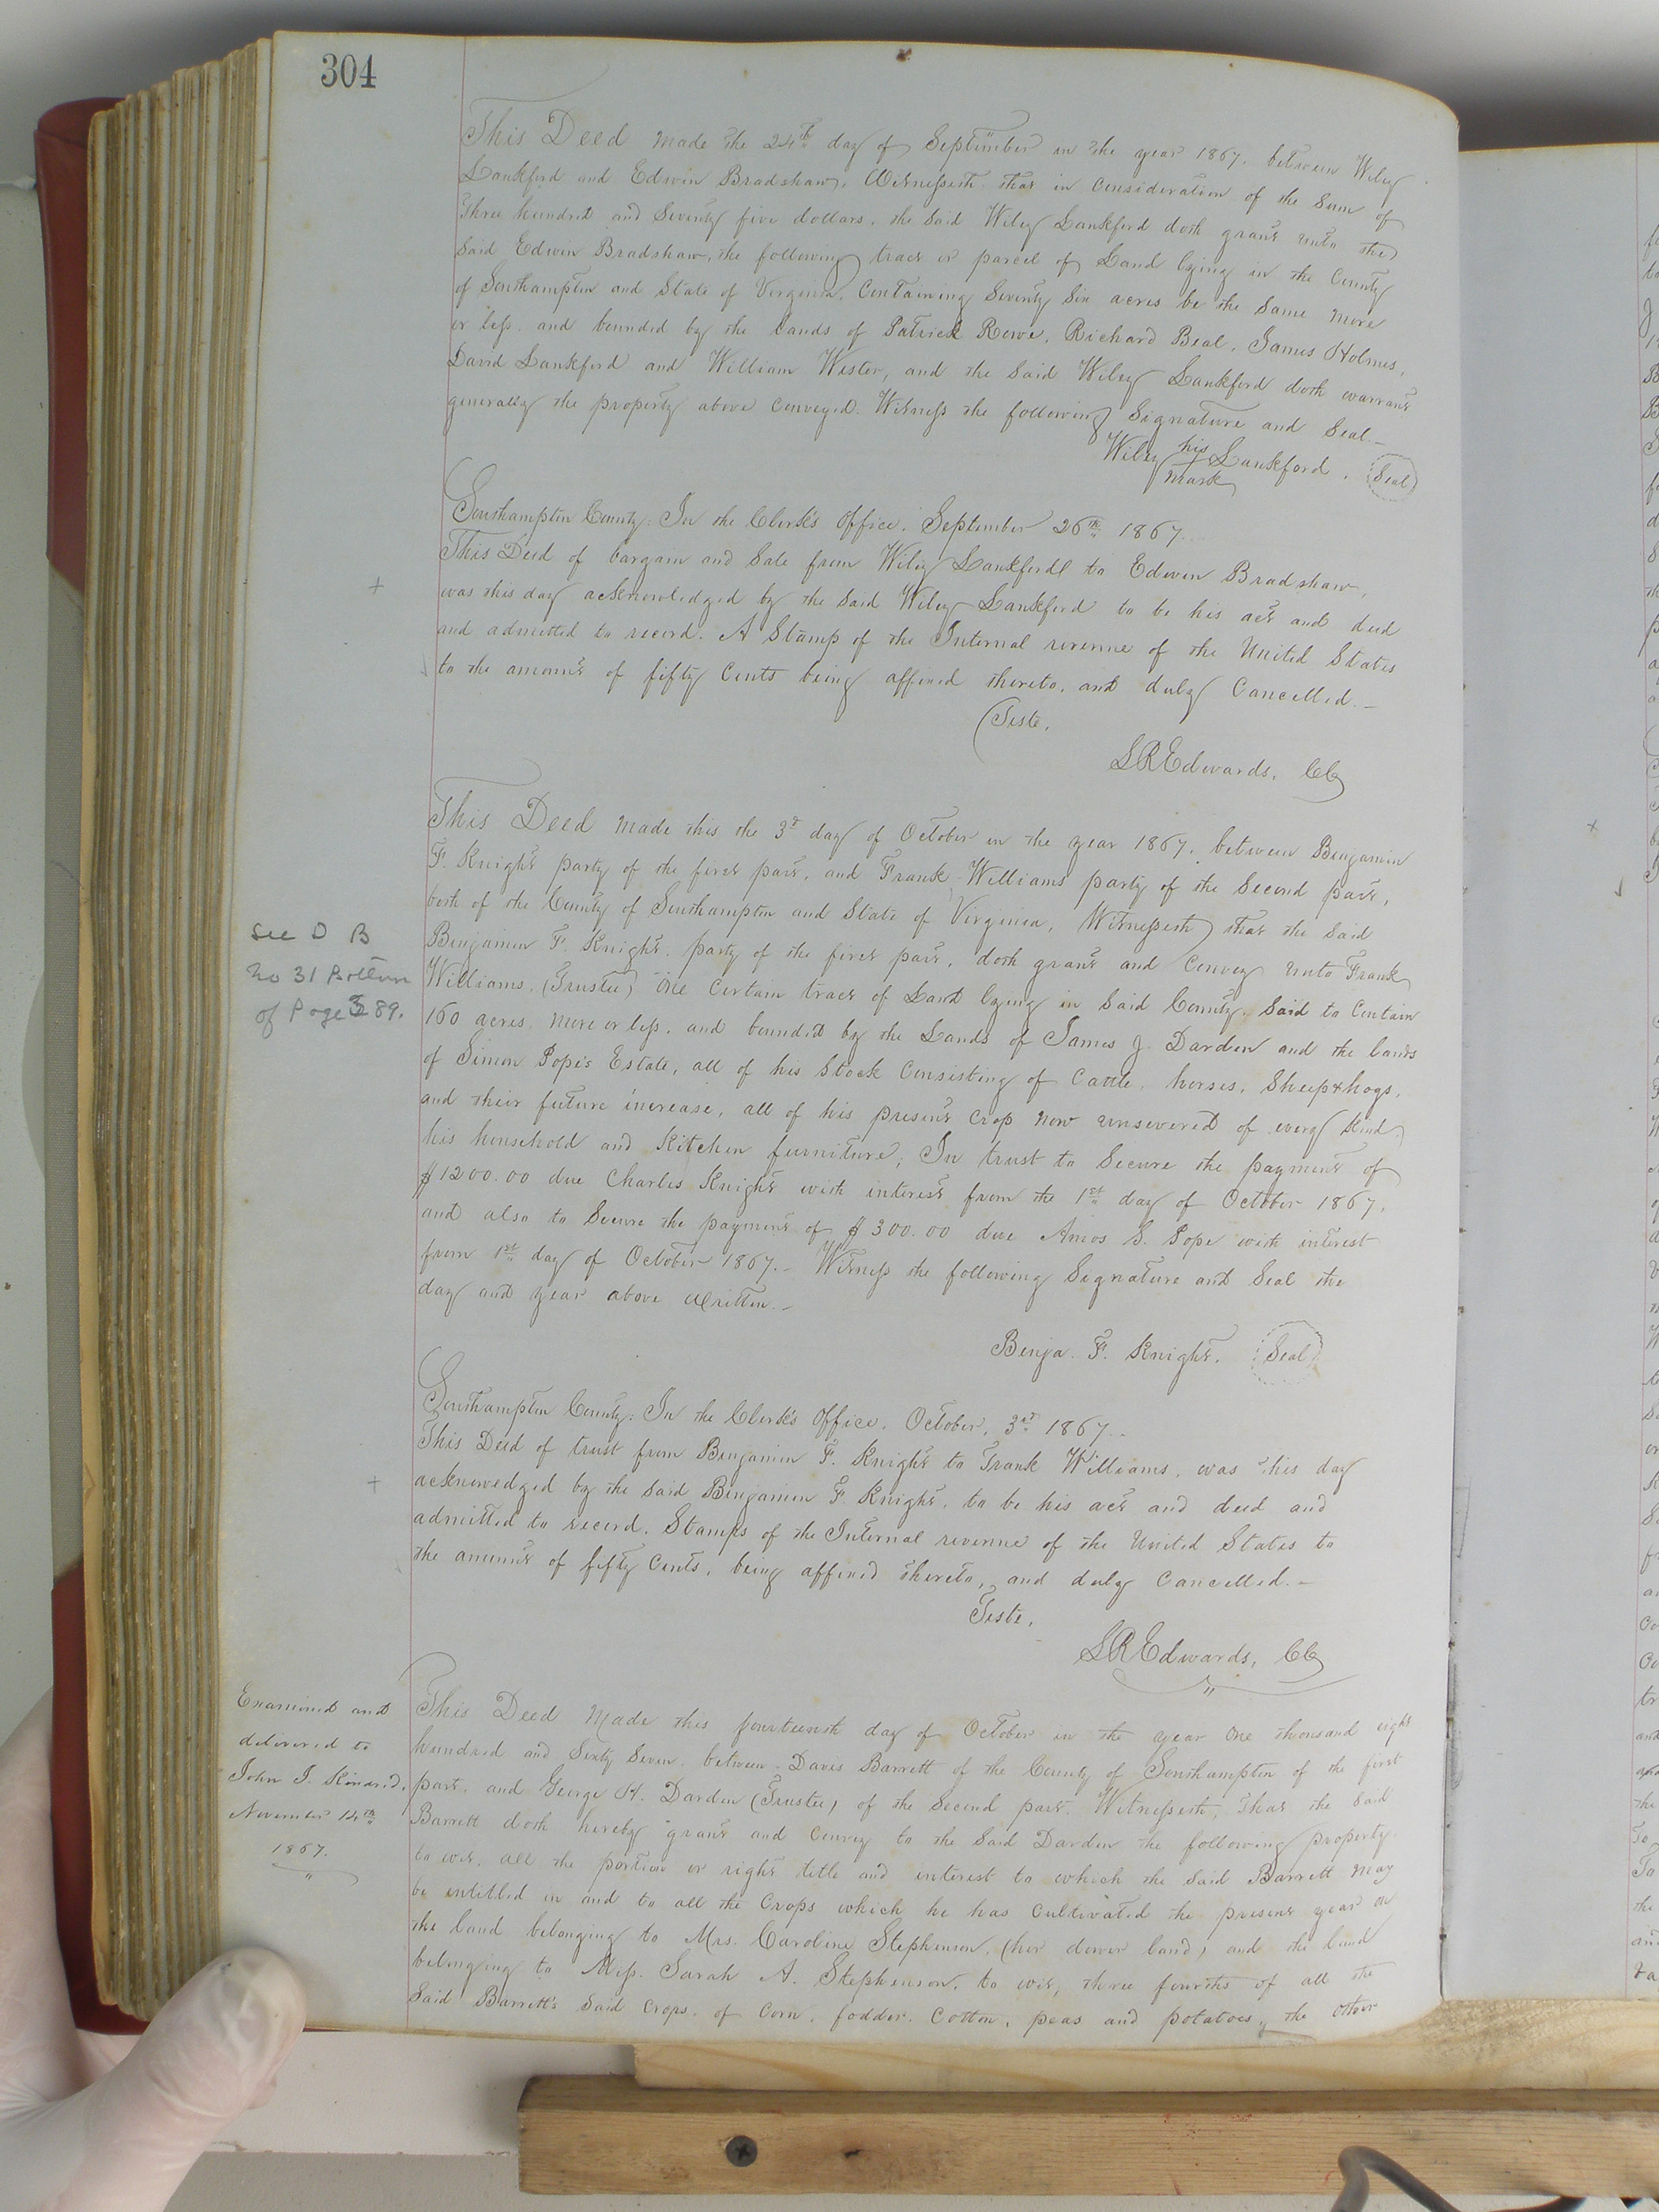 304
This Deed made the 24th day of September in the year 1867. between Wiley
Lankford and Edwin Bradshaw, Witnesseth that in consideration of the sum of
Three hundred and Seventy five dollars, the said Wiley Lankford doth grant unto the
Said Edwin Bradshaw, the following tract or parcel of Land lying in the County
of Southampton and State of Virginia, Containing Seventy Six acres be the Same more
or less. and bounded by the lands of Patrick Rowe, Richard Beal, James Holmes,
David Lankford and William Wester, and the said Wiley Lankford doth warrant
generally the property above Conveyed. Witness the following Signature and Seal.—
his
Wiley + Lankford. (Seal)
mark
Southampton County: In the Clerk's office. September 26th 1867.
This Deed of bargain and Sale from Wiley Lankford to Edwin Bradshaw,
was this day acknowledged by the said Wiley Lankford to be his act and deed
and admitted to record. A Stamp of the Internal revenue of the United States
to the amount of fifty Cents being affixed thereto, and duly Cancelled.—
Teste,
L R Edwards, CC
This Deed made this the 3d day of October in the year 1867. between Benjamin
F. Knight party of the first part, and Frank Williams party of the Second part,
both of the County of Southampton and State of Virginia, Witnesseth that the said
Benjamin F. Knight, party of the first part, doth grant and Convey unto Frank
Williams, (Trustee) One Certain tract of Land lying in Said County. Said to Contain
160 acres, more or less, and bounded by the Lands of James J. Darden and the lands
of Simon Pope's Estate, all of his Stock Consisting of Cattle, horses, Sheep & hogs,
and their future increase, all of his present Crop now unsevered of every kind
his household and Kitchen furniture; In trust to Secure the payment of
$1200.00 due Charles Knight with interest from the 1st day of October 1867,
and also to Secure the payment of $300.00 due Amos S. Pope with interest
from 1st day of October 1867.— Witness the following Signature and Seal the
day and year above written.—
Benja. F. Knight. (Seal)
See D B
No 31 Bottom
of Page 389.
Southampton County: In the Clerk's Office. October, 3rd 1867.
This Deed of trust from Benjamin F. Knight to Frank Williams, was this day
acknowedged by the said Benjamin F. Knight, to be his act and deed and
admitted to record. Stamps of the Internal revenue of the United States to
the amount of fifty Cents, being affixed thereto, and duly Cancelled.—
Teste,
L R Edwards, CC
Examined and
delivered to
John J. Kindred,
November 14th
1867.
This Deed Made this fourteenth day of October in the year One thousand eight
hundred and Sixty Seven. between Davis Barrett of the County of Southampton of the first
part, and George H. Darden (Trustee) of the Second part. Witnesseth, That the said
Barrett doth hereby grant and Convey to the Said Darden the following property
to wit, all the portion or right title and interest to which the Said Barrett may
be entitled in and to all the Crops which he has Cultivated the present year on
the land belonging to Mrs. Caroline Stephenson, (her dower land) and the land
belonging to Miss. Sarah A. Stephenson, to wit, three fourths of all the
Said Barrett's Said Crops, of Corn, fodder, Cotton, peas and potatoes, the other